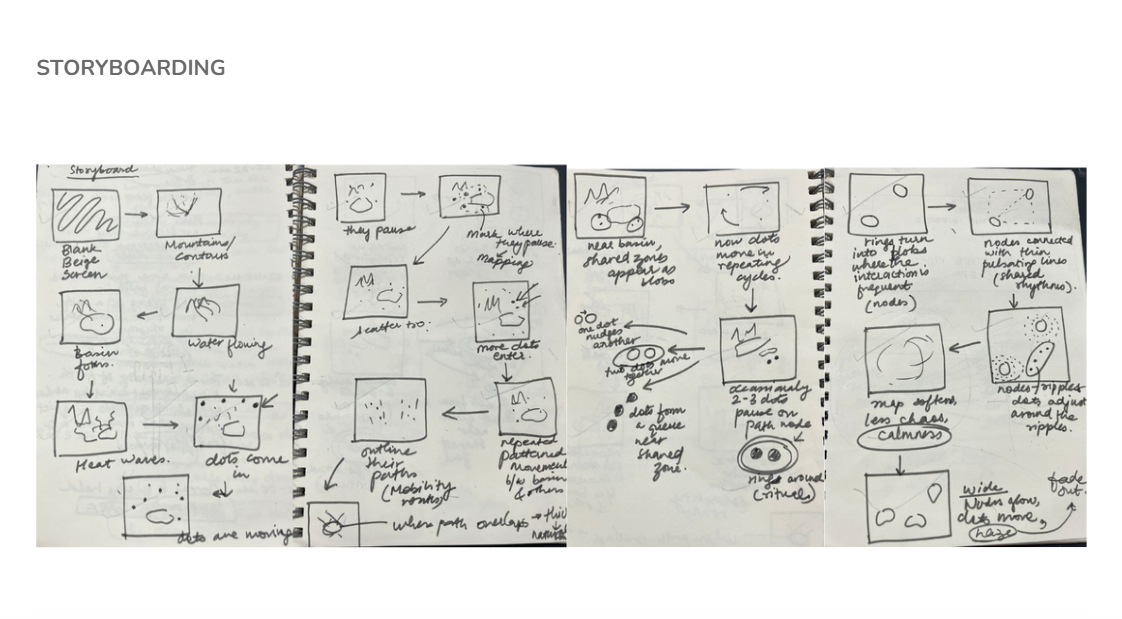 STORYBOARDING
Storyboard
Blank
Beige
Screen
Mountains/
contours
Water flowing
Basin
forms.
Heat waves.
dots come
in
dots are moving
they pause
Mark where
they pause.
mapping
scatter too.
more dots
enter.
repeated
patterned
movement
b/w basin
& others
outline
their
paths
(Mobility
routes)
where path overlaps
near basin,
shared zones
appear as
blobs
now dots
move in
repeating
cycles.
occasionaly
2-3 dots
pause on
path node
rings around
(rituals)
one dot
nudges
another
two dots move
together
dots form
a queue
near
shared
zone.
rings turn
into blobs
where the
interaction is
frequent
(nodes)
nodes connected
with thin
pulsating lines
(shared
rhythms).
nodes→ripples
dots adjust
around the
ripples.
map softens,
less chaos,
calmness
wide
Nodes glow,
dots move,
haze
fade
out.